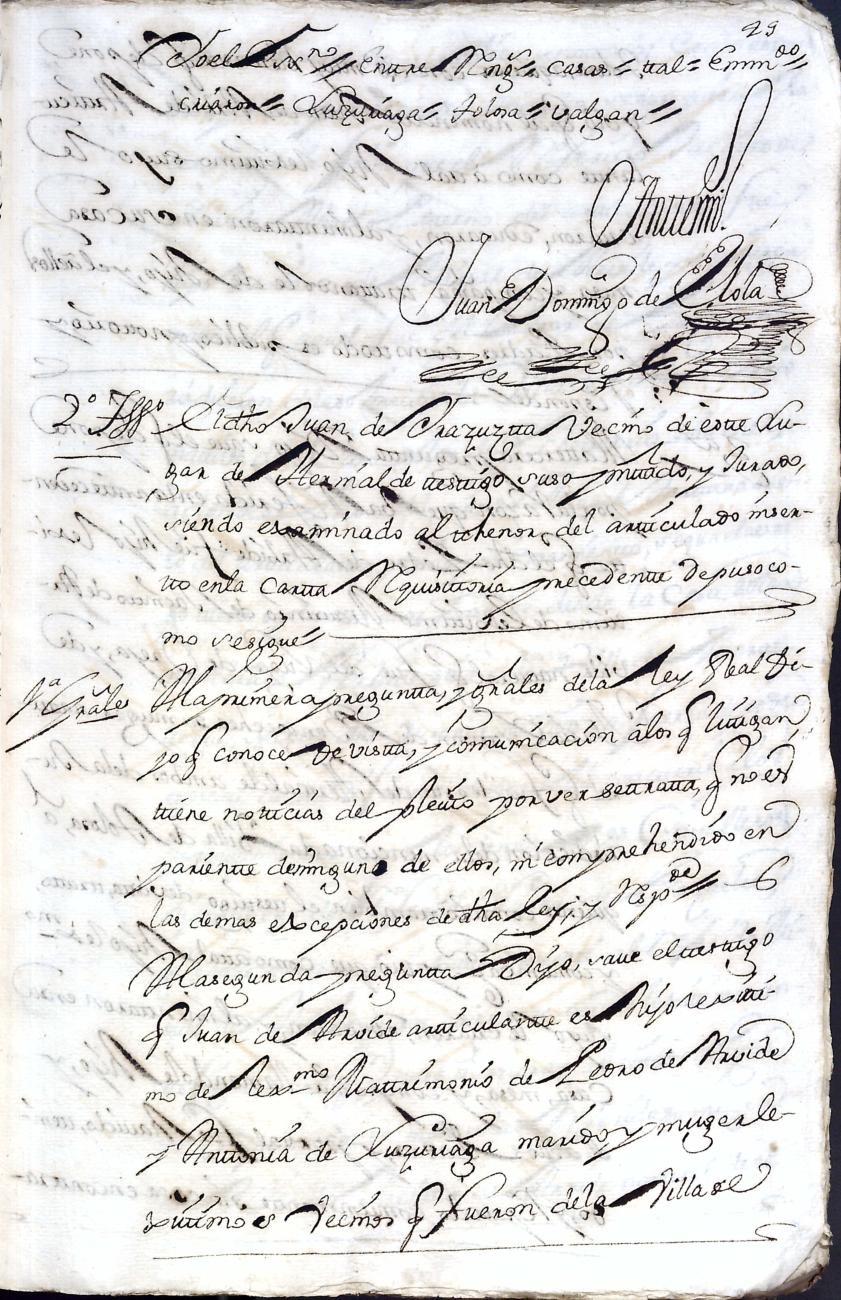 29
Yo el Ess.no = Entre Rng.s = casas = tal = Emm.do =
criaron = Luzuriaga = tolosa = valgan =
Antemi
Juan Domingo de Elola
2.º Tssº El dho Juan de Yrazuzta Vecino de este Lu-
gar de Hernialde testigo suso pntado, y Jurado,
siendo examinado al thenor del articulado inser-
to en la Carta Requisitoria precedente Depuso co-
mo se sigue =
1.ª Grâles A la primera pregunta, y grâles de la ley Real Di-
jo q conoce de vista, y comunicacion â los q litigan
tiene noticias del pleito por ver se trata, q no es
pariente de ninguno de ellos, ni comprehendido en
las demas excepciones de dha Ley, y Resp.de =
A la segunda pregunta Dijo, save el testigo
q Juan de Arvide articulante es hijo lexiti-
mo de lex.mo Matrimonio de Pedro de Arvide
y Antonia de Luzuriaga marido y muger le-
xitimos Vecinos q fueron de la Villa de